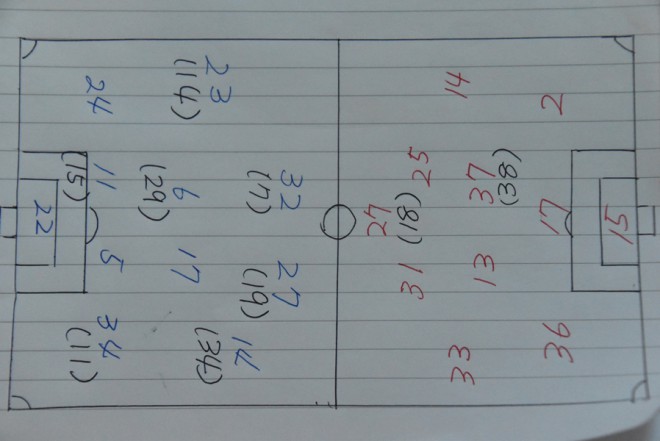 15
2 17 36
(38)
14 37 13 33
25 (18) 31
27
32 27
(7) (19)
23 14
(14) 6 17 (34)
(29)
24 11 5 34
(15) (11)
22